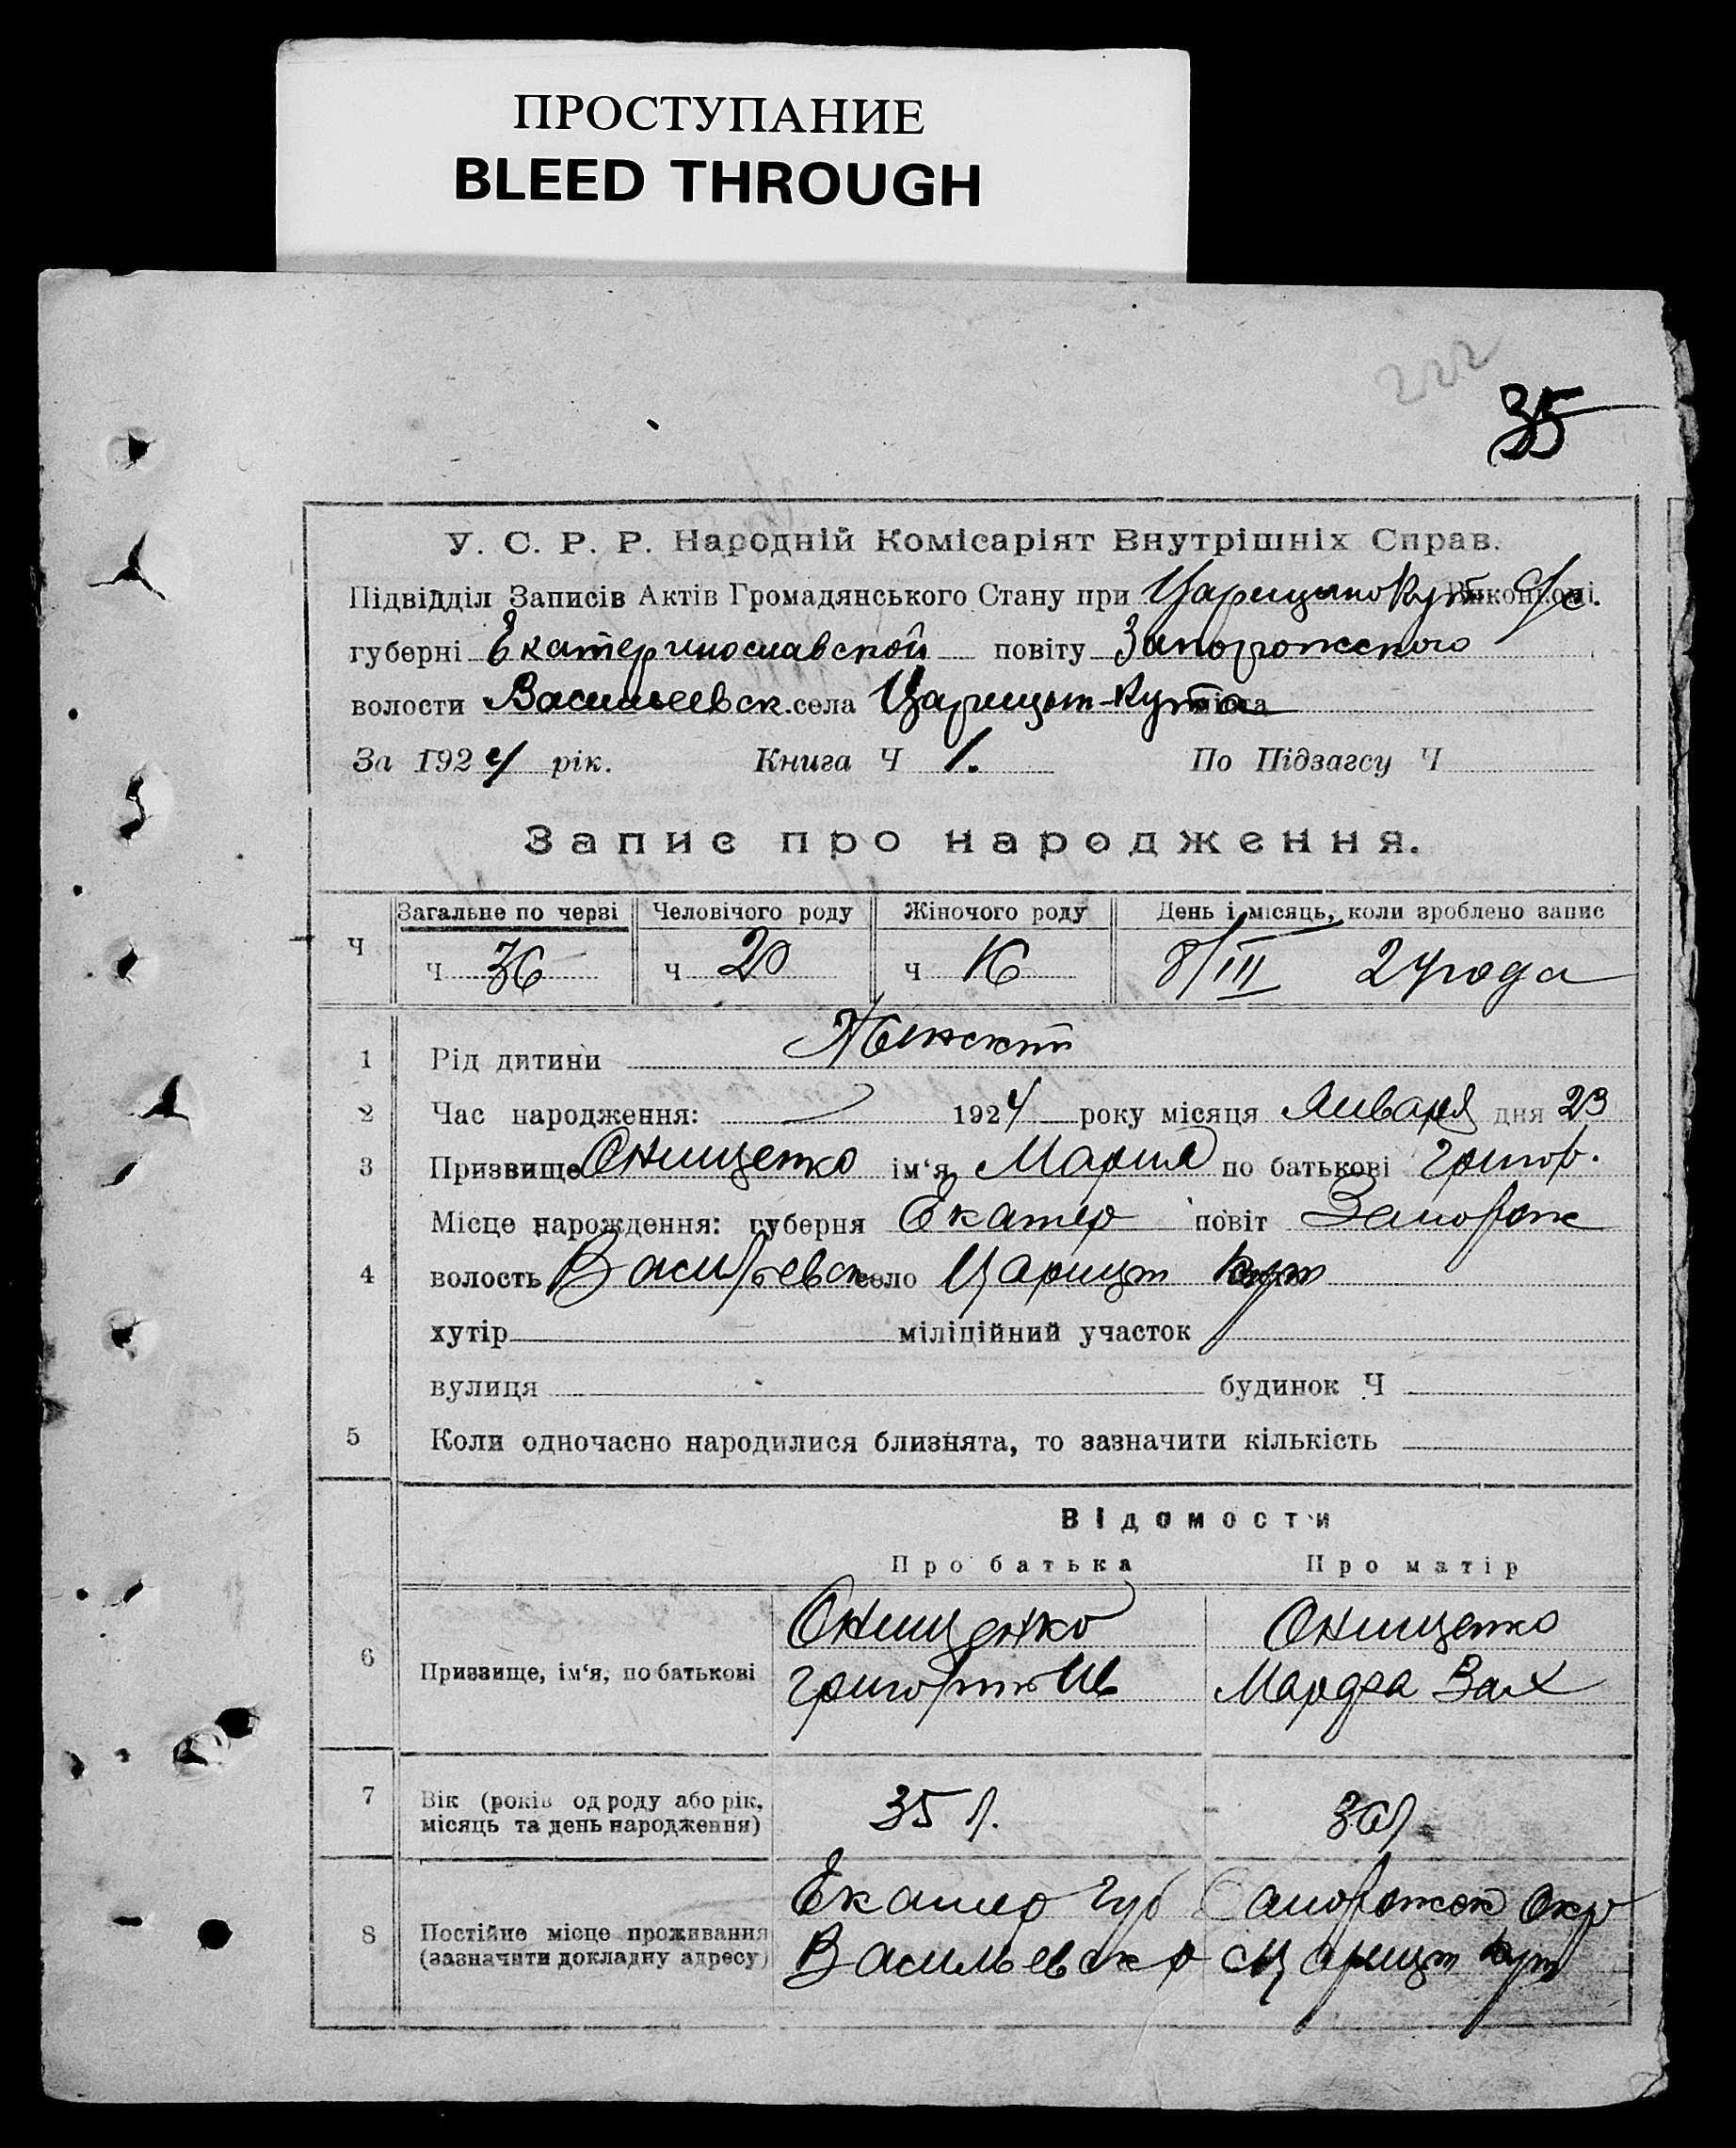 ПРОСТУПАНИЕ
BLEED THROUGH
222
35
У. С. Р. Р. Народній Комісаріят Внутрішніх Справ.
Підвідділ Записів Актів Громадянського Стану при Царицыно Кут с/с.
губерні Екатеринославской повіту Запорожского
волости Васильевск. села Царицын-Кута міста
За 1924 рік. Книга Ч 1. По Підзагсу Ч
Запис про народження.
Ч Загальне по черзі Человічого роду Жіночого роду День і місяць, коли зроблено запис
Ч 36 Ч 20 Ч 16 8/III 24 года
1 Рід дитини Женский
2 Час народження: 1924 року місяця Января дня 23
3 Призвище Онищенко ім‘я Мария по батькові Григор.
Місце народження: губерня Екатер повіт Запорож
4 волость Васильевск село Царицын Кут
хутір міліційний участок
вулиця будинок Ч
5 Коли одночасно народилися близнята, то зазначити кількість
Відомости
Про батька Про матір
Онищенко Онищенко
6 Призвище, ім‘я, по батькові Григорий Ив Марфа Зах
7 Вік (років од роду або рік, місяць та день народження) 35 л. 30 л.
Екатер губ Запорожск окр
8 Постійне місце проживання (зазначити докладну адресу) Васильевск р с Царицын Кут